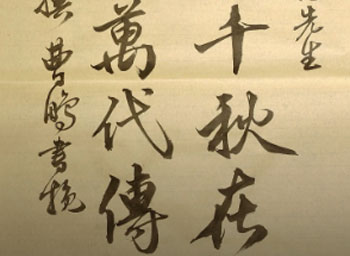 先生
千秋在
萬代傳
曹鵬書